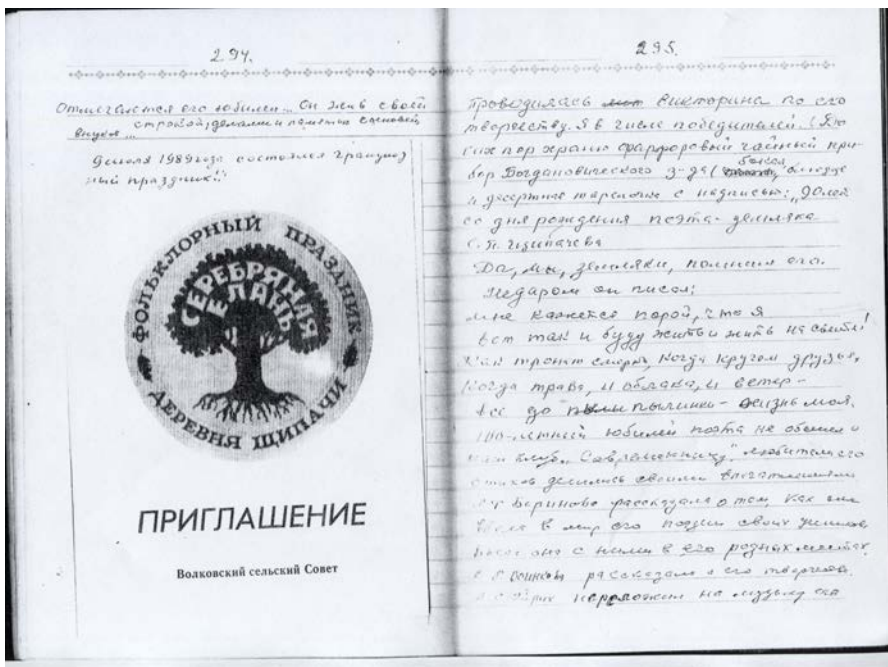 294.
Отмечаются его юбилеи... Он жив своей
строкой, делами и памятью сыновей
внуков...
9 июля 1989 года состоялся грандиоз
ный праздник!!
ФОЛЬКЛОРНЫЙ ПРАЗДНИК
СЕРЕБРЯНАЯ
ЕЛАНЬ
ДЕРЕВНЯ ЩИПАЧИ
ПРИГЛАШЕНИЕ
Волковский сельский Совет
295.
Проводилась викторина по его
творчеству. Я в числе победителей. (До
сих пор храню фарфоровый чайный при-
бор Богдановического з-да (бокал, блюдце
и десертная тарелочка с надписью: „90 лет
со дня рождения поэта-земляка
С.П. Щипачева
Да, мы, земляки, помним его.
Недаром он писал:
Мне кажется порой, что я
вот так и буду жить и жить на свете!
Как тронет смерть, когда кругом друзья,
Когда трава, и облака, и ветер-
Все до пылинки - жизнь моя.
100-летний юбилей поэта не обошел и
наш клуб „Современницу", любители его
стихов делились своими впечатлениями
Баринова рассказала о том, как она
в мир его поэзии своих учеников,
она с ними в его родных местах.
рассказала о его творчестве.
переложил на музыку